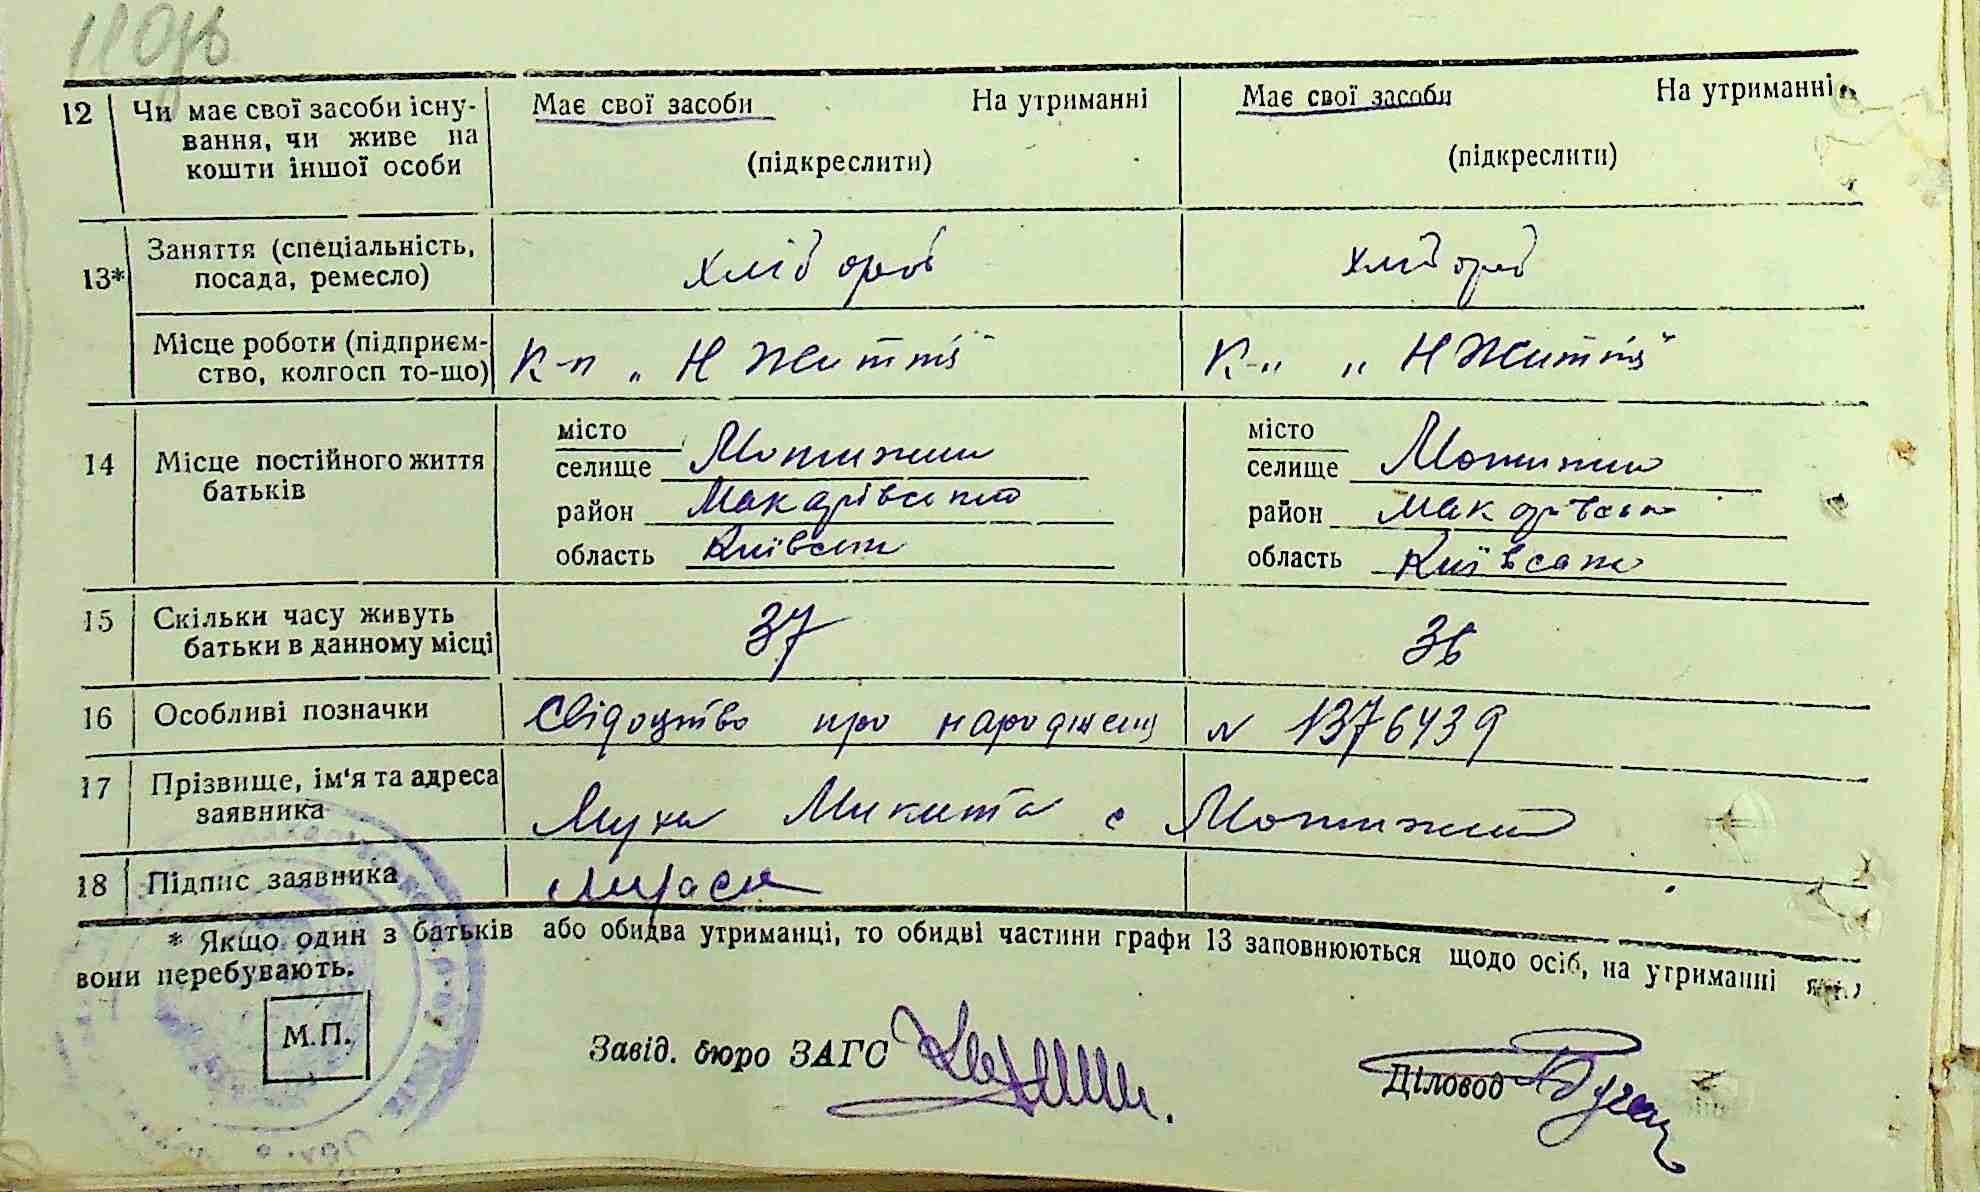 12 Чи має свої засоби існу- Має свої засоби На утриманні Має свої засоби На утриманні
вання, чи живе на
кошти іншої особи (підкреслити) (підкреслити)
13* Заняття (спеціальність, хлібороб хлібороб
посада, ремесло)
Місце роботи (підприєм- К-п „Н Життя" К-п „Н Життя"
ство, колгосп то-що)
14 Місце постійного життя місто місто
батьків селище Мотижин селище Мотижин
район Макарівський район Макарівський
область Київська область Київська
15 Скільки часу живуть 37 36
батьки в данному місці
16 Особливі позначки Свідоцтво про народженя № 1376439
17 Прізвище, ім'я та адреса Муха Микита с Мотижин
заявника
18 Підпис заявника
* Якщо один з батьків або обидва утриманці, то обидві частини графи 13 заповнюються щодо осіб, на утриманні
вони перебувають.
М.П.
Завід. бюро ЗАГС Діловод